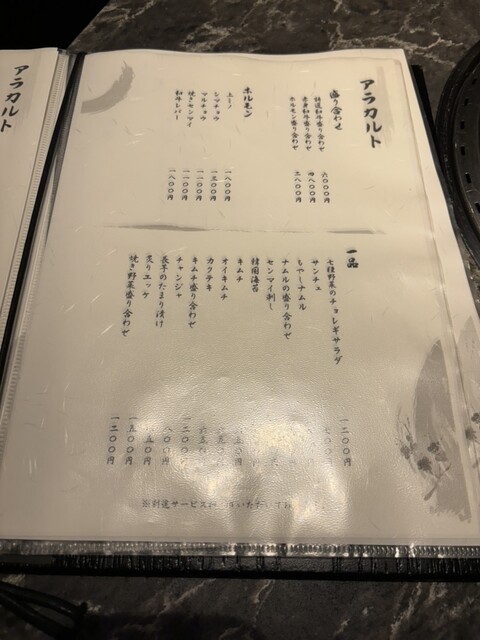 アラカルト
アラカルト
盛り合わせ
特選和牛盛り合わせ 六〇〇〇円
赤身和牛盛り合わせ 四八〇〇円
ホルモン盛り合わせ 二八〇〇円
ホルモン
上ミノ 一八〇〇円
シマチョウ 一三〇〇円
マルチョウ 一一〇〇円
焼きセンマイ 一一〇〇円
和牛レバー 一八〇〇円
一品
七種野菜のチョレギサラダ 一二〇〇円
サンチュ 七〇〇円
もやしナムル
ナムルの盛り合わせ
センマイ刺し
韓国海苔
キムチ 五〇円
オイキムチ 六五〇円
カクテキ 六五〇円
キムチ盛り合わせ 一二〇〇円
チャンジャ 八〇〇円
長芋のたまり漬け 六五〇円
炙りユッケ 一五〇〇円
焼き野菜盛り合わせ 一二〇〇円
※別途サービス いただいて